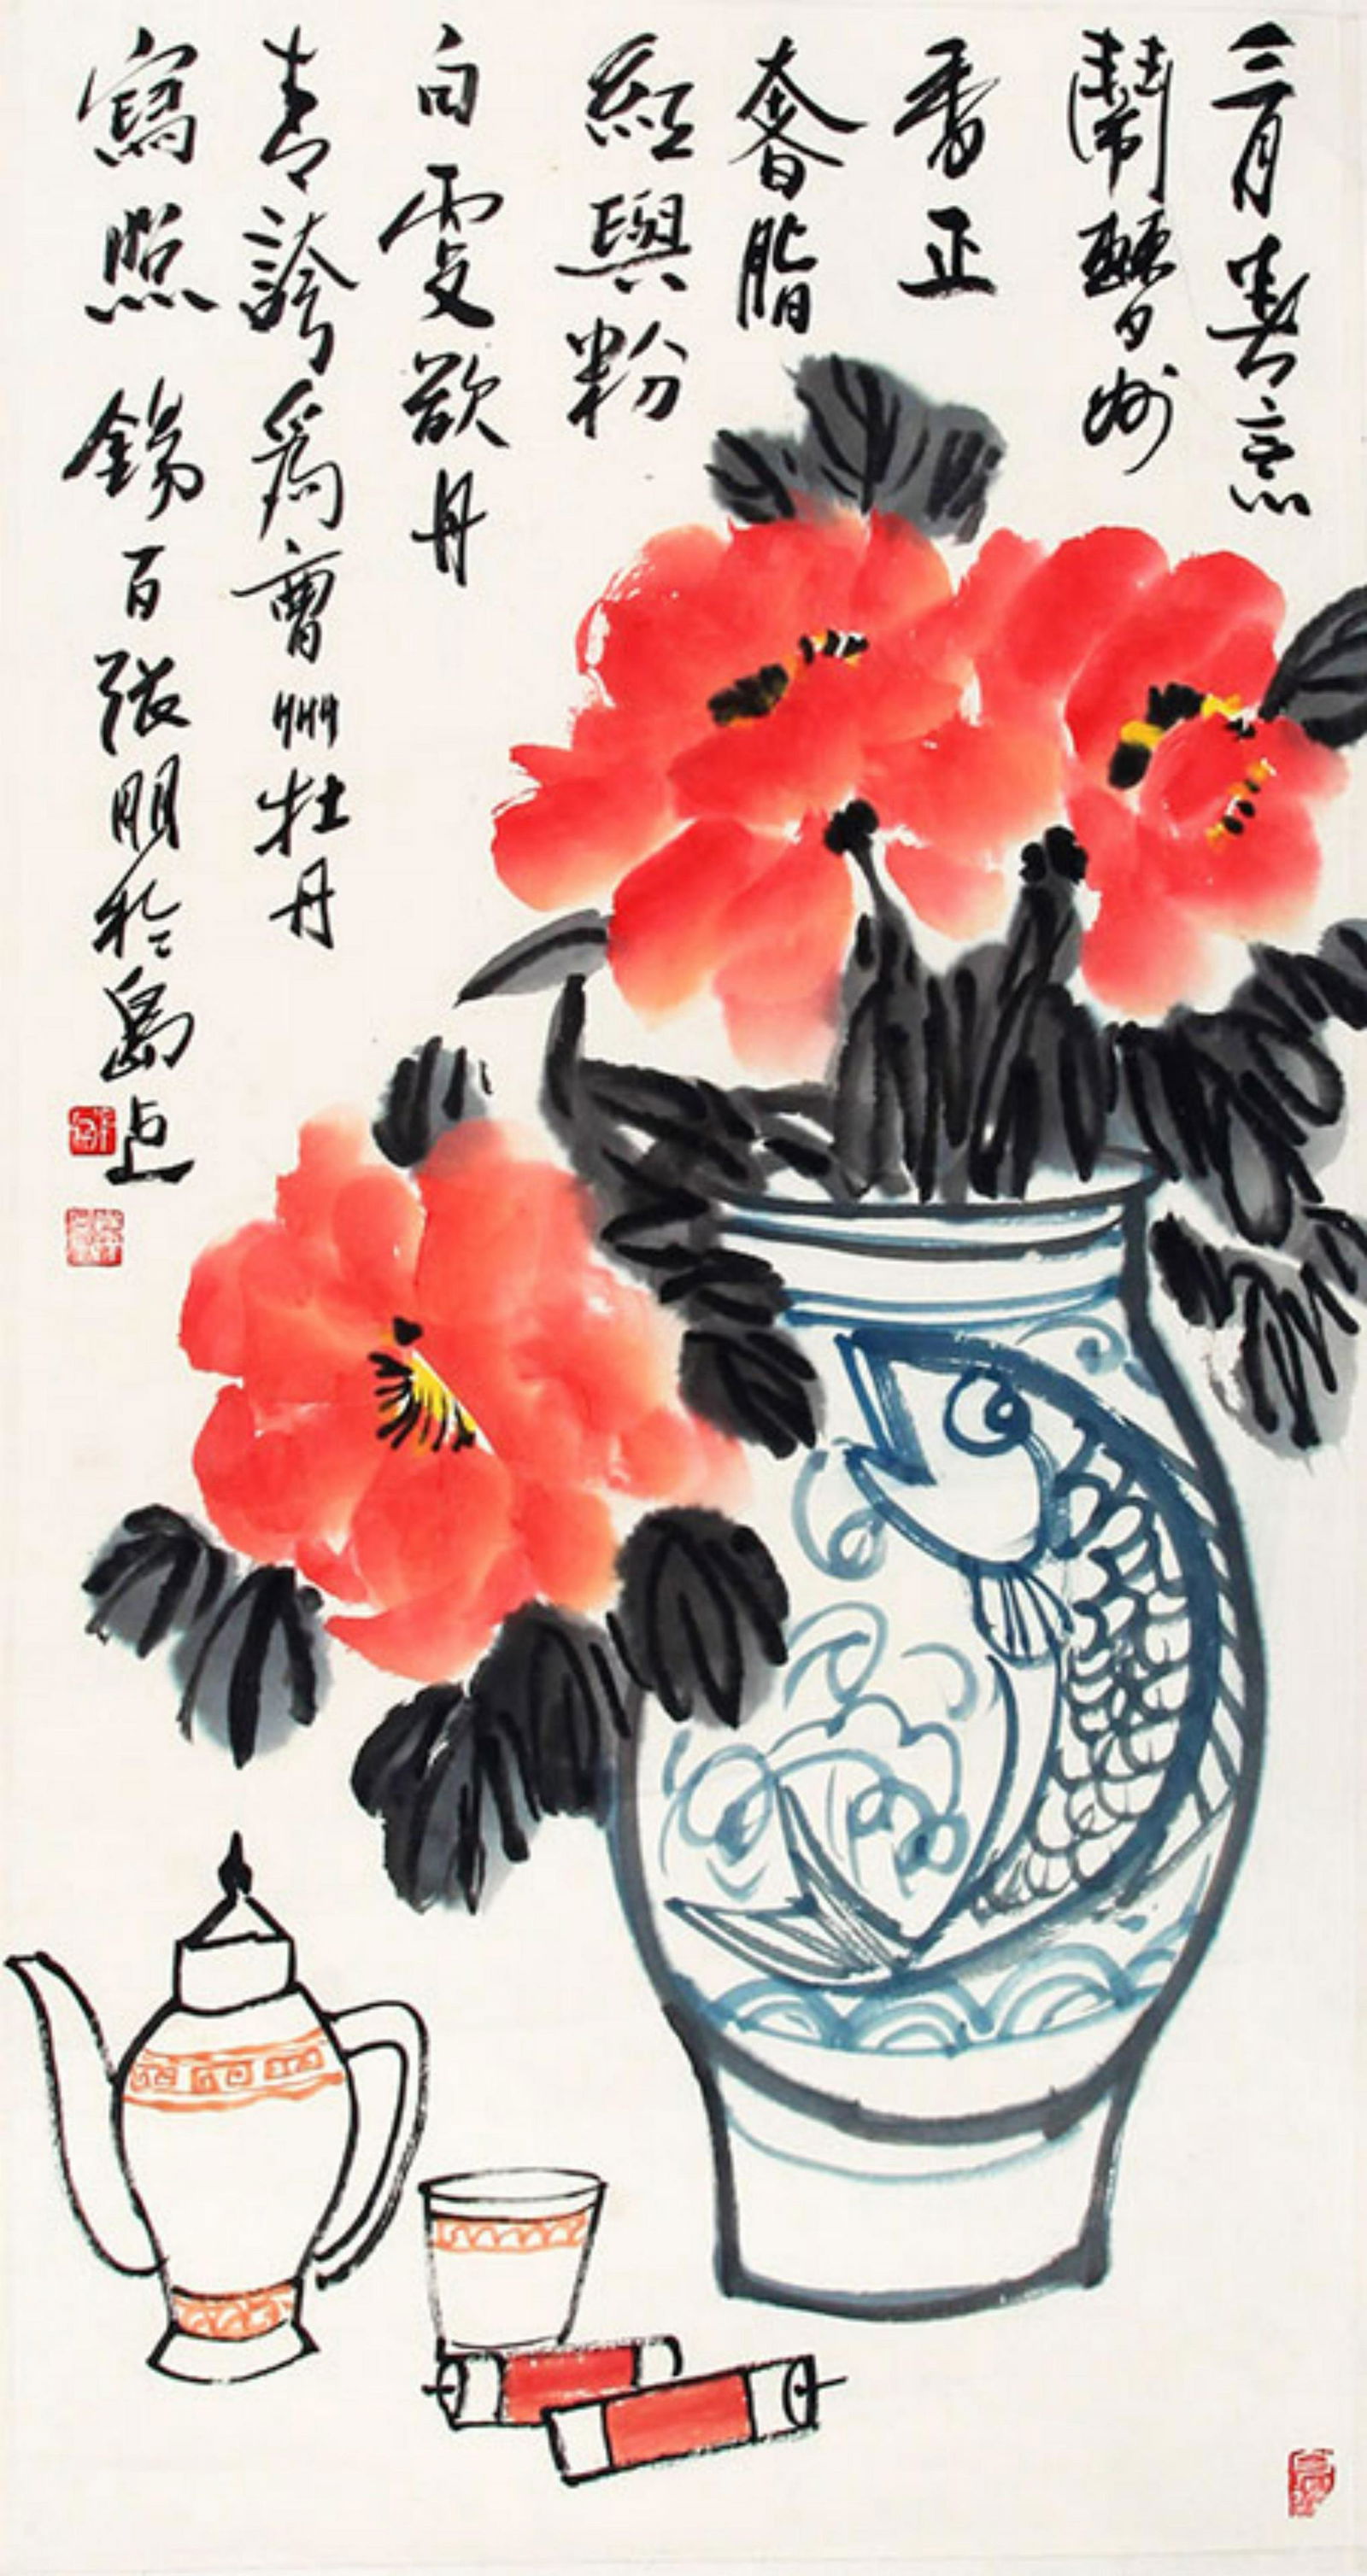 三月春意
鬧
香正
奢脂
紅與粉
白欲丹
青誇為曹州牡丹
寫照錫百張朋於島上